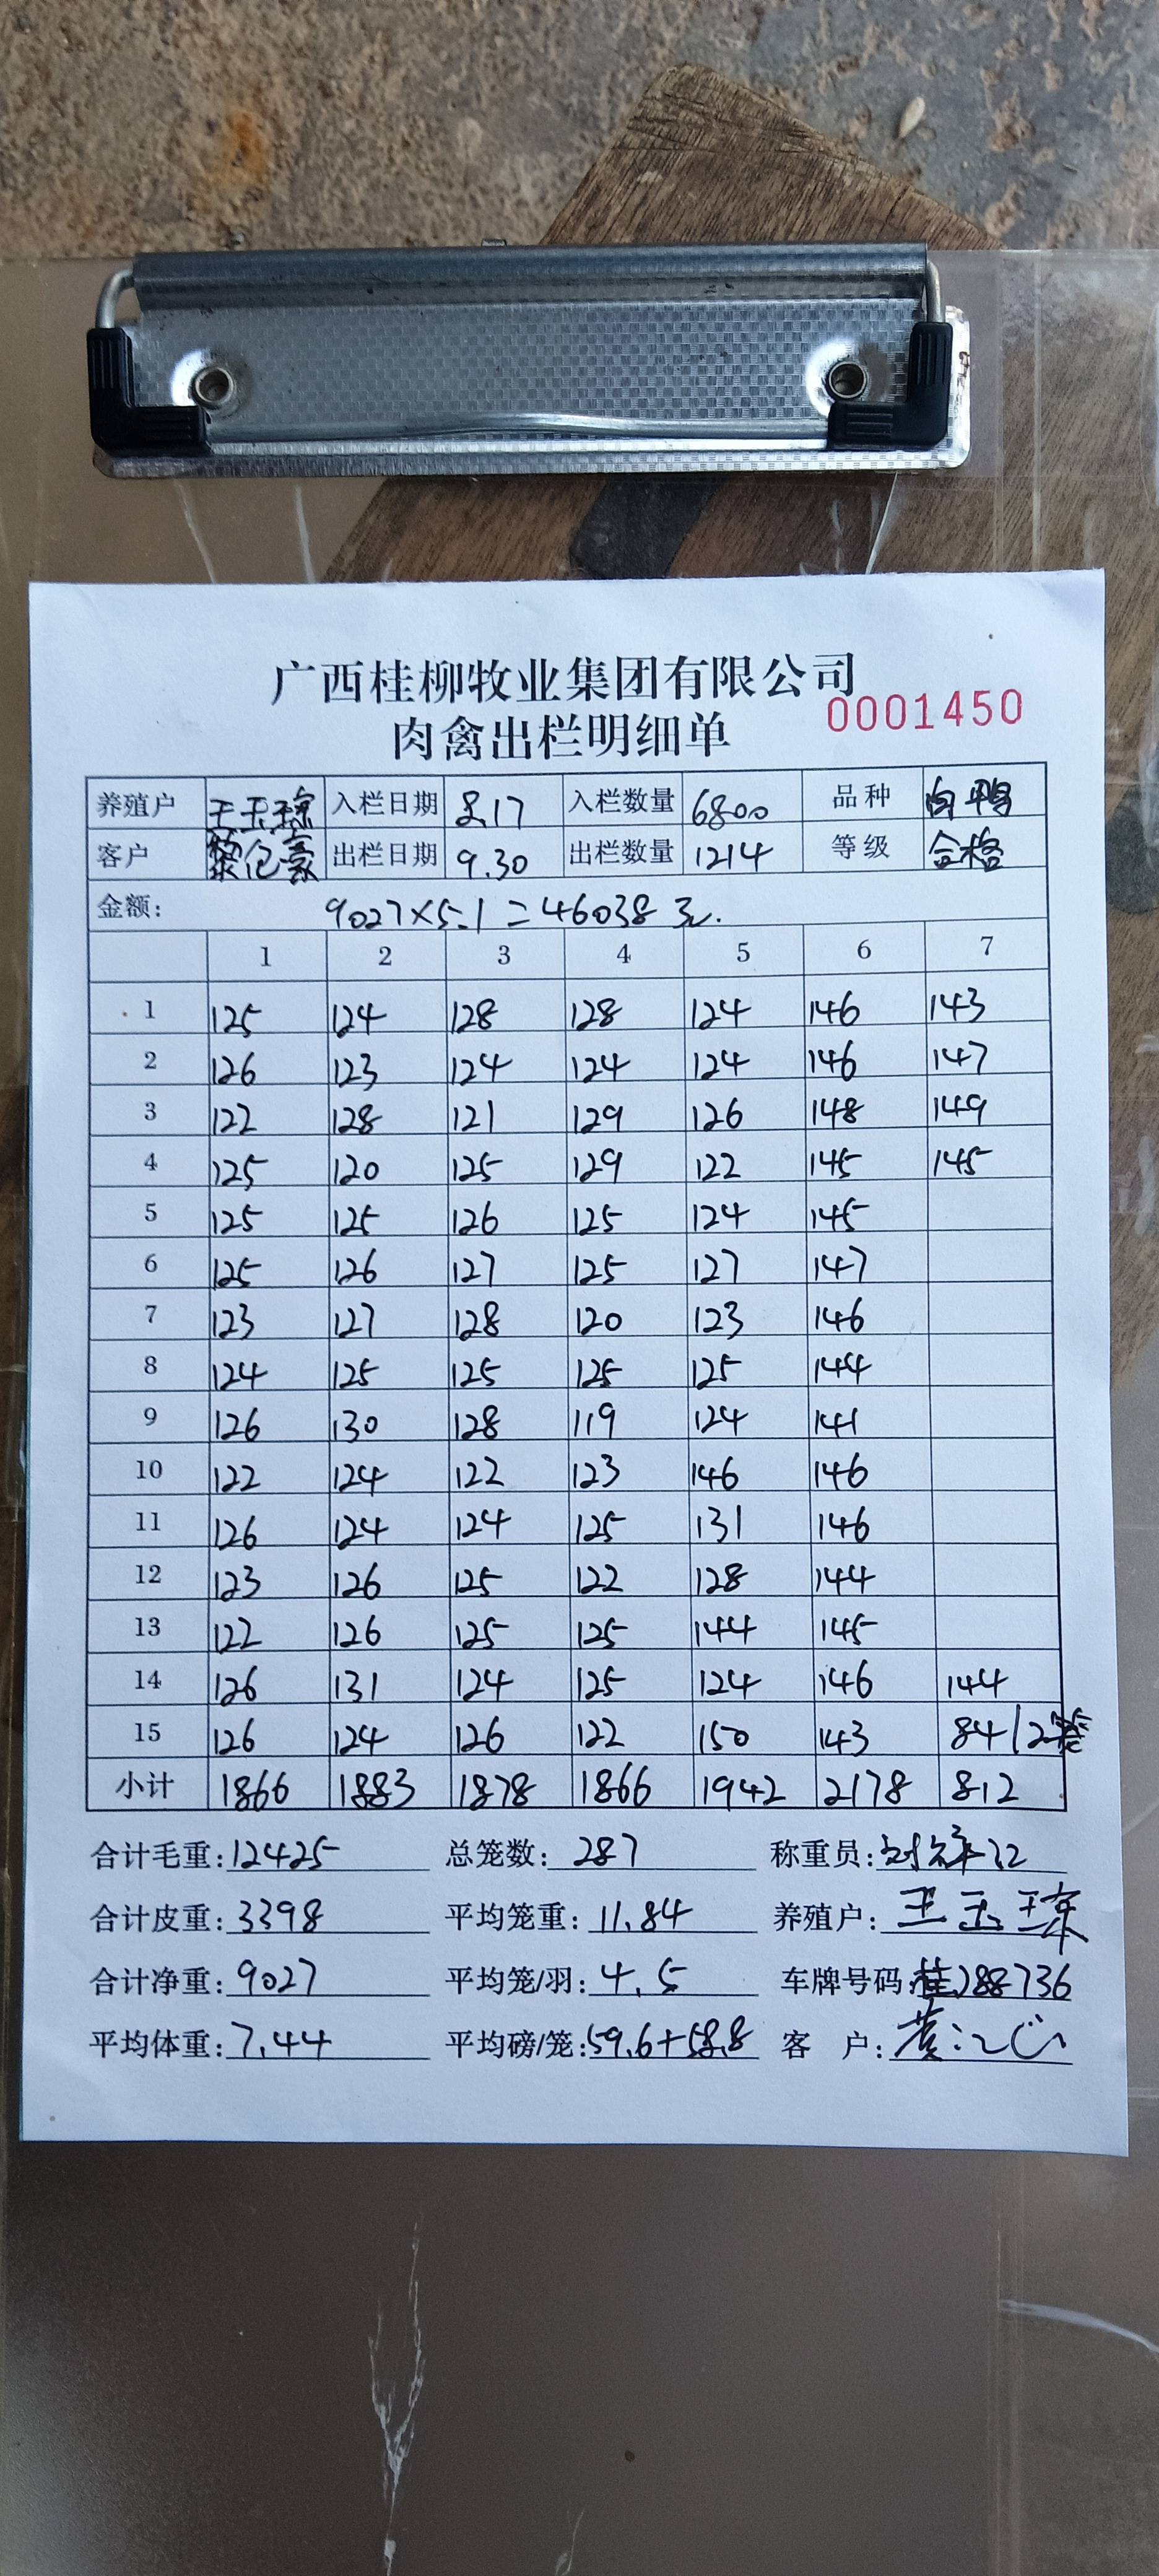 广西桂柳牧业集团有限公司
肉禽出栏明细单 0001450
养殖户 王玉琼 入栏日期 8.17 入栏数量 6800 品种 肉鸭
客户 出栏日期 9.30 出栏数量 1214 等级 合格
金额: 9027×5.1=46038元.
1 2 3 4 5 6 7
1 125 124 128 128 124 146 143
2 126 123 124 124 124 146 147
3 122 128 121 129 126 148 149
4 125 120 125 129 122 145 145
5 125 125 126 125 124 145
6 125 126 127 125 127 147
7 123 127 128 120 123 146
8 124 125 125 125 125 144
9 126 130 128 119 124 141
10 122 124 122 123 146 146
11 126 124 124 125 131 146
12 123 126 125 122 128 144
13 122 126 125 125 144 145
14 126 131 124 125 124 146 144
15 126 124 126 122 150 143 84/2笼
小计 1866 1883 1878 1866 1942 2178 812
合计毛重: 12425 总笼数: 287 称重员:
合计皮重: 3398 平均笼重: 11.84 养殖户: 王玉琼
合计净重: 9027 平均笼/羽: 4.5 车牌号码: 桂J88736
平均体重: 7.44 平均磅/笼: 59.6+58.8 客 户: